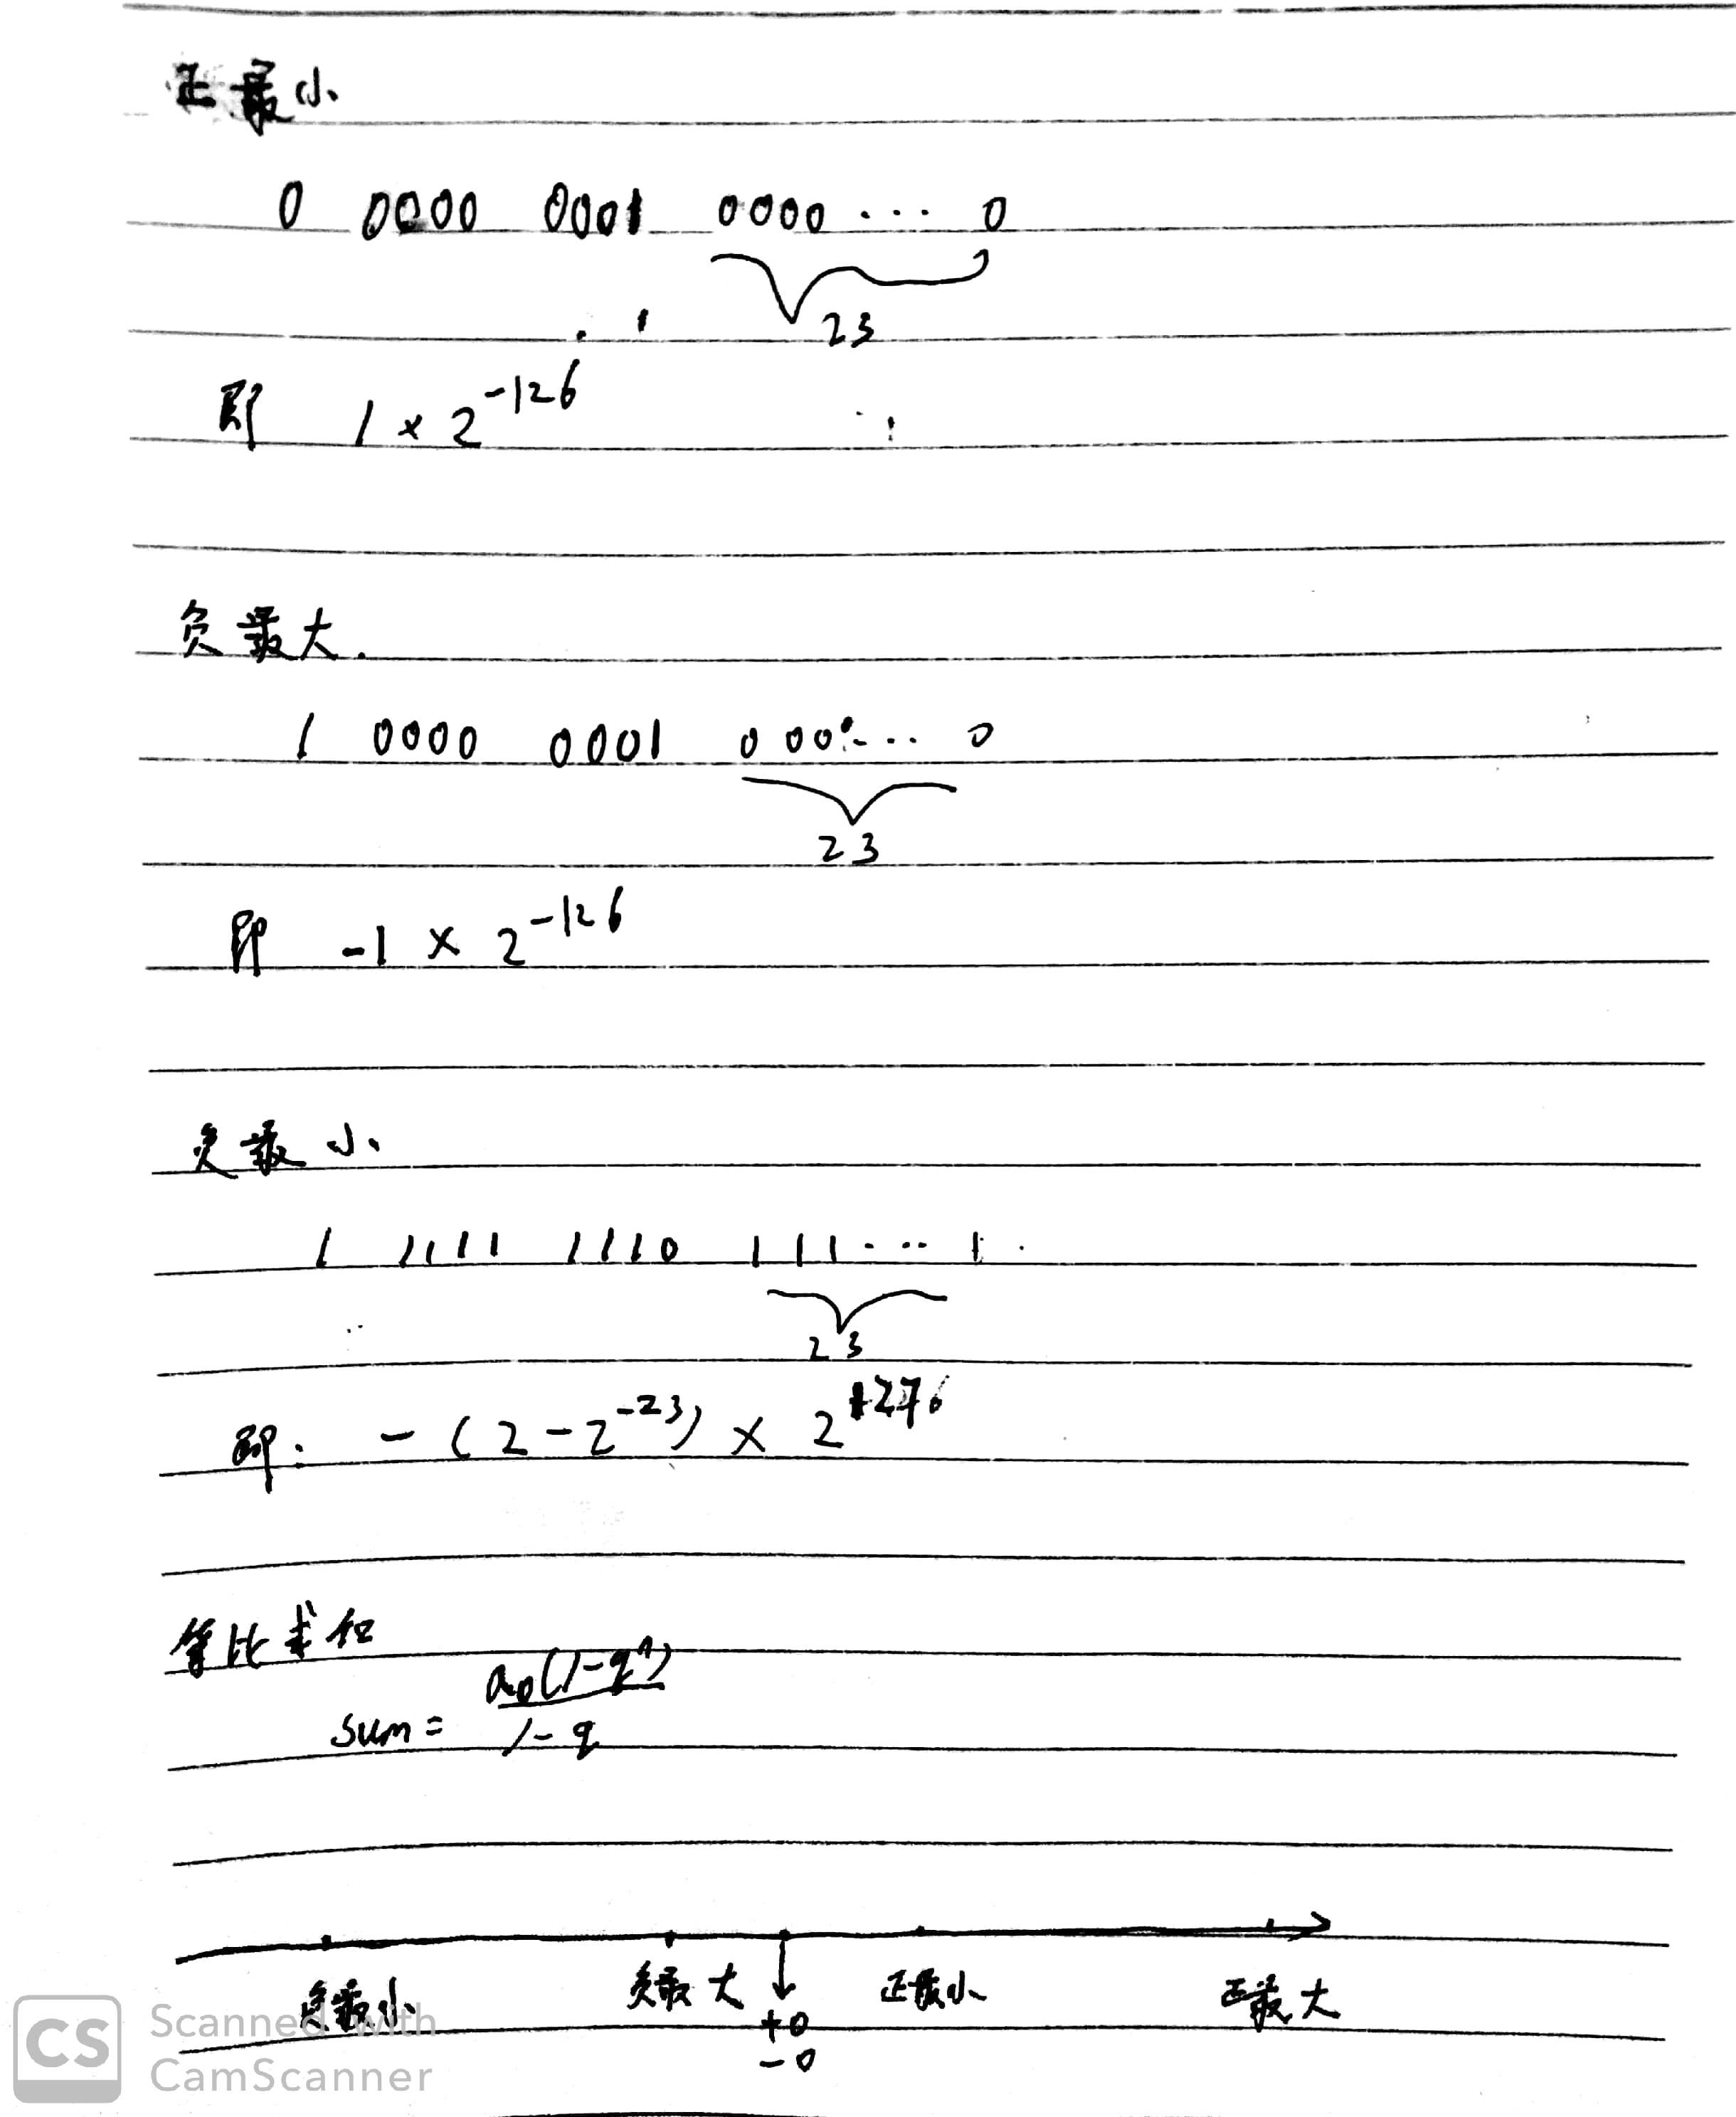 正最小
0 0000 0001 0000 ... 0
23
即 1 × 2^-126
负最大.
1 0000 0001 000... 0
23
即 -1 × 2^-126
负最小
1 1111 1110 111... 1.
23
即: - (2-2^-23) ×
等比求和
sum = a0(1-q^n) / 1-q
负最小 负最大 ↓ 正最小 正最大
+0
-0
CS Scanned with
CamScanner